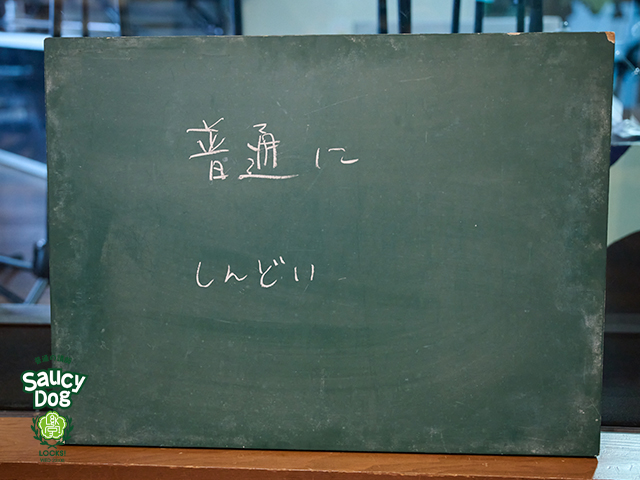 普通に
しんどい
Saucy
Dog
LOCKS!